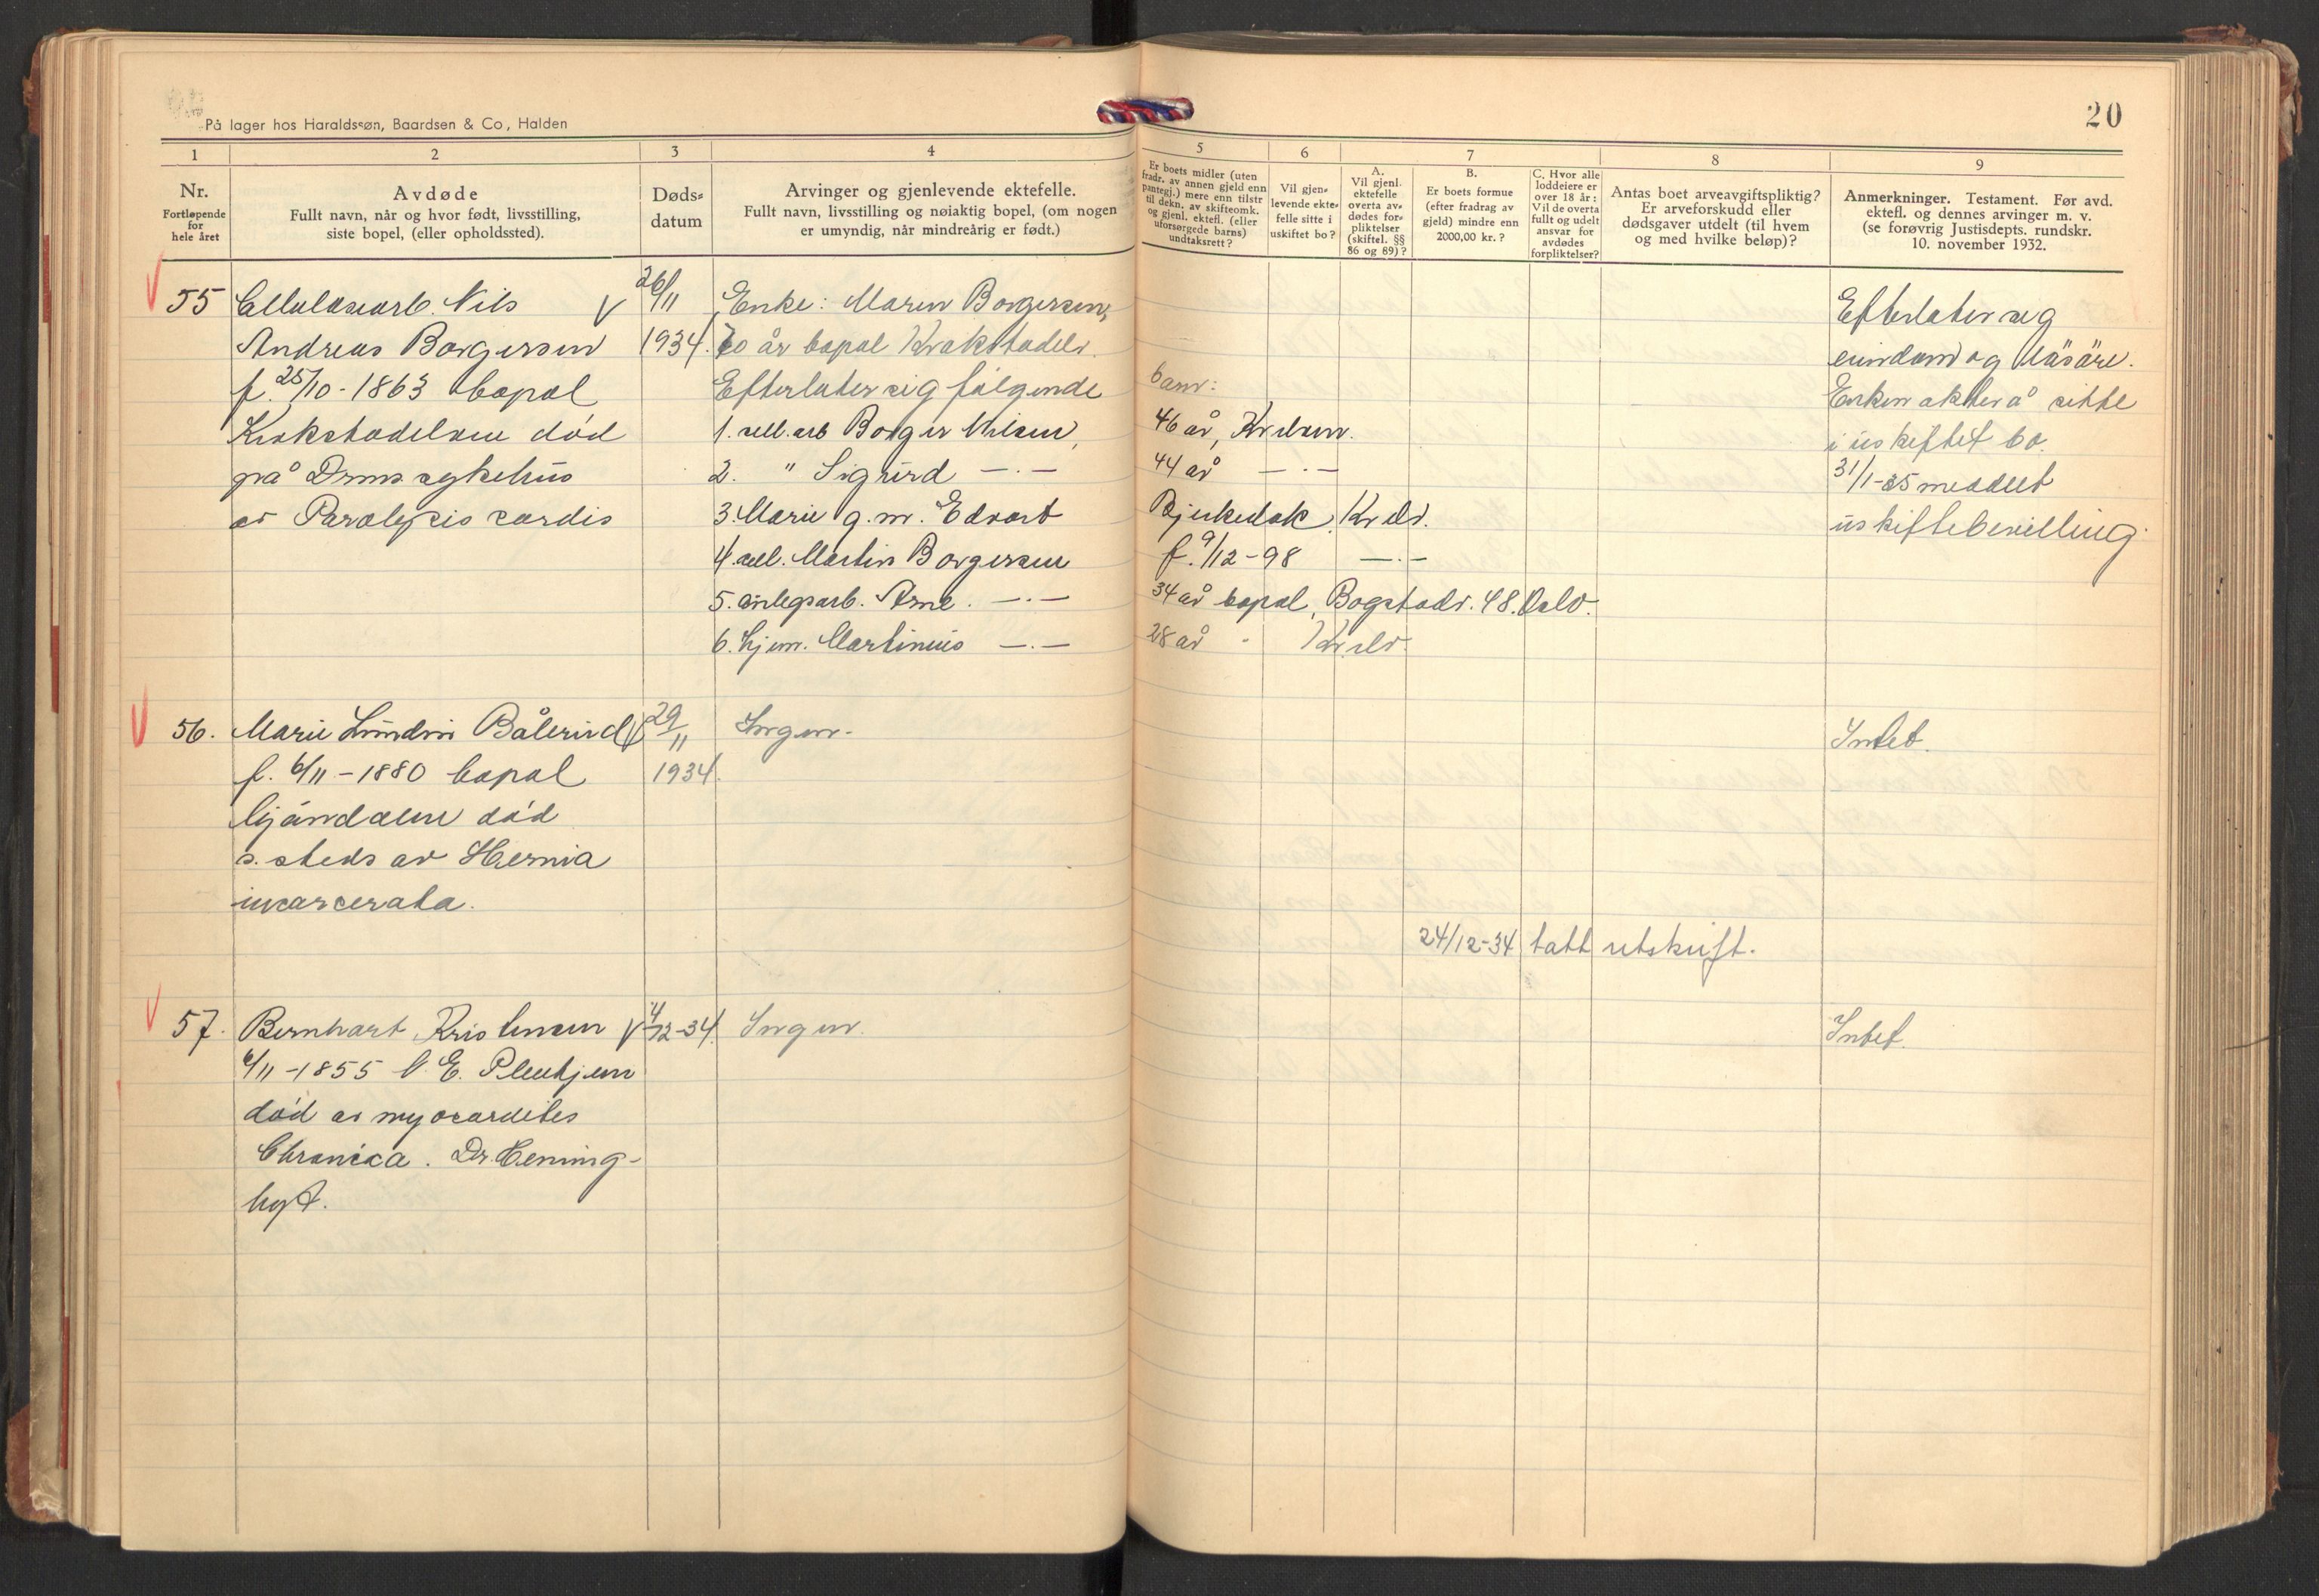 På lager hos Haraldssøn, Baardsen & Co., Halden
20
1 2 3 4 5 6 7 8 9
Nr.
Fortløpende
for
hele året
Avdøde
Fullt navn, når og hvor født, livsstilling,
siste bopel, (eller opholdssted).
Døds-
datum
Arvinger og gjenlevende ektefelle.
Fullt navn, livsstilling og nøiaktig bopel, (om nogen
er umyndig, når mindreårig er født.)
Er boets midler (uten
fradr. av annen gjeld enn
pantegj.) mere enn tilstr.
til dekn. av skifteomk.
og gjenl. ektefl. (eller
uforsørgede barns)
undtaksrett?
Vil gjen-
levende ekte-
felle sitte i
uskiftet bo?
A.
Vil gjenl.
ektefelle
overta av-
dødes for-
pliktelser
(skiftel. §§
86 og 89)?
B.
Er boets formue
(efter fradrag av
gjeld) mindre enn
2000,00 kr.?
C. Hvor alle
loddeiere er
over 18 år:
Vil de overta
fullt og udelt
ansvar for
avdødes
forpliktelser?
Antas boet arveavgiftspliktig?
Er arveforskudd eller
dødsgaver utdelt (til hvem
og med hvilke beløp)?
Anmerkninger. Testament. Før avd.
ektefl. og dennes arvinger m. v.
(se forøvrig Justisdepts. rundskr.
10. november 1932.
55 Cellulosearb. Nils
Andreas Borgersen
f. 25/10-1863 bopæl
Krokstadelven død
på Drms. sykehus
av Paralysis cordis
26/11
1934.
Enke: Maren Borgersen,
70 år bopæl Krokstadelv.
Efterlater sig følgende barn:
1. cell.arb Borger Nilsen, 46 år, Kr.elven.
2. " Sigurd —·— 44 år —·—
3. Marie g.m. Edvart Bjerkedok, Kr.elv.
4. cell. Martin Borgersen f. 9/12-98 —·—
5. anlegsarb. Arne. —·— 34 år bopæl, Bogstadv. 48. Oslo.
6. hjem. Martinius —·— 28 år - Kr.elv.
Efterlater seg
eiendom og løsøre.
Enken akter å sitte
i uskiftet bo.
31/1-35 meddelt
uskiftebevilling.
56. Marie Lundin
f. 6/11-1880 bopæl
Mjøndalen død
s. steds av Hernia
incarcerata.
29/11
1934.
Ingen.
Intet.
24/12-34 tatt utskrift.
57. Bernhart Kristensen
6/11-1855 N. E. Pleiehjem
død av myocardites
Chronica. Dr. Heming-
hyt.
4/12-34.
Ingen.
Intet.